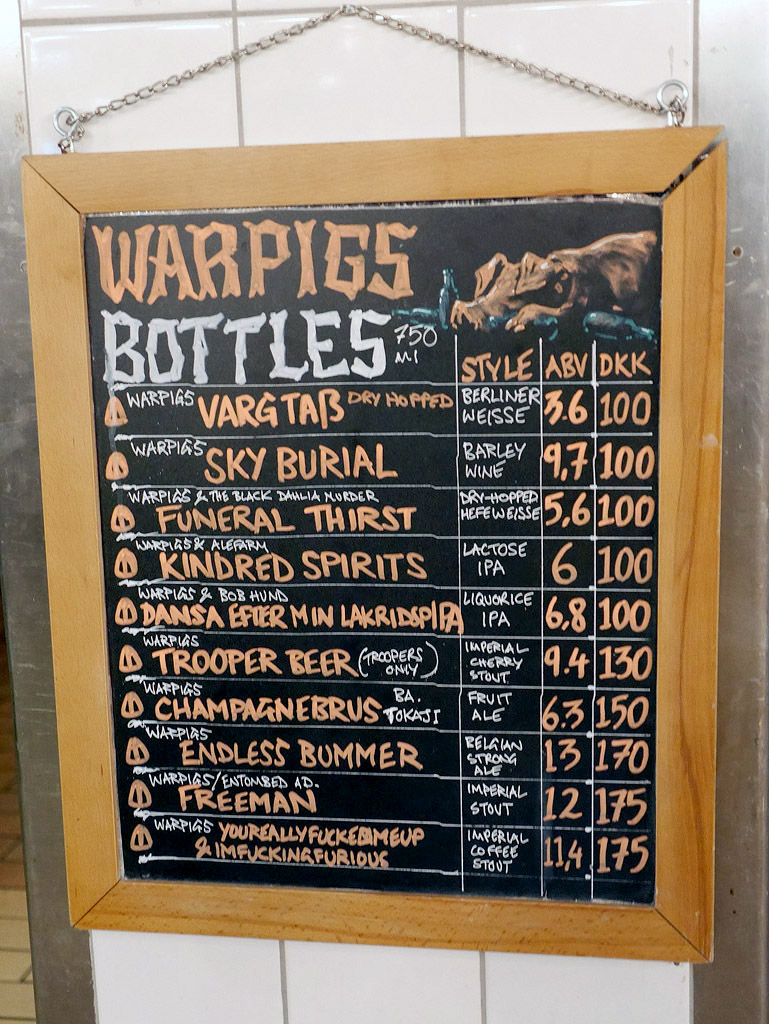 WARPIGS
BOTTLES 750 ml
STYLE ABV DKK
WARPIGS VARGTAß DRY HOPPED BERLINER WEISSE 3.6 100
WARPIGS SKY BURIAL BARLEY WINE 9,7 100
WARPIGS & THE BLACK DAHLIA MURDER
FUNERAL THIRST DRY-HOPPED HEFEWEISSE 5,6 100
WARPIGS & ALEFARM
KINDRED SPIRITS LACTOSE IPA 6 100
WARPIGS & BOB HUND
DANSA EFTER MIN LAKRIDSPIPA LIQUORICE IPA 6,8 100
WARPIGS
TROOPER BEER (TROOPERS ONLY) IMPERIAL CHERRY STOUT 9.4 130
WARPIGS
CHAMPAGNEBRUS BA. TOKAJI FRUIT ALE 6.3 150
WARPIGS
ENDLESS BUMMER BELGIAN STRONG ALE 13 170
WARPIGS/ENTOMBED A.D.
FREEMAN IMPERIAL STOUT 12 175
WARPIGS YOUREALLYFUCKEDMEUP
& IMFUCKINGFURIOUS IMPERIAL COFFEE STOUT 11,4 175